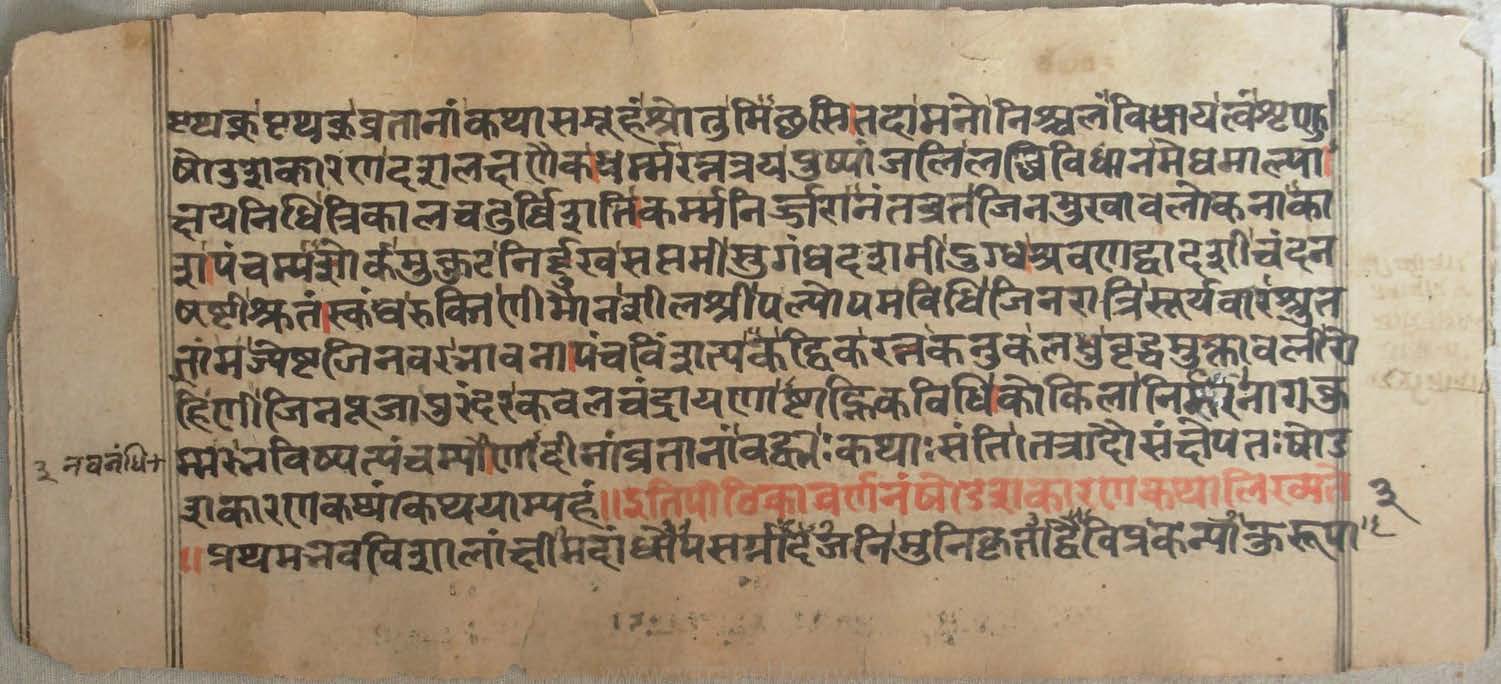 पृथक् पृथक् व्रतानां कथासमूहं श्रोतुमिच्छसि तदा मनो निश्चलं विधाय त्वं श्रृणु
षोडशकारण दशलक्षणैक धर्म्म रत्नत्रय पुष्पांजलि लब्धिविधान मेघमाल्या
क्षयनिधि त्रिकालचतुर्विंशति कर्म्मनिर्ज्जरानंतव्रत जिनमुखावलोकनाका
श पंचम्यशोक मुकुट निर्दुखसप्तमी सुगंधदशमी दुग्ध श्रवणद्वादशी चंदन
षष्टी श्रुतस्कंध रुक्मिणी मौन शील श्रीपल्योपमविधि जिनरात्रि सूर्यवार श्रुत
ज्येष्टजिनवर भावना पंचविंशत्य द्विक रत्न कनुक लघु वृद्ध मुक्तावली रो
हिणी जिनपूजा पुरंदर कवलचंद्रायणाष्टाह्निकविधि कोकिला निर्म्मल नाग कु
विष्पत्पंचम्यौ व्रतानां वह्व्यः कथाः संति तत्रादौ संक्षेपतः षोड
३ नवनंधि +
शकारण कथयाम्यहं ॥ इति पीठिकावर्णनं षोडशकारणकथा लिख्यते
३
॥ प्रथम नवविशालां मुनि विप्रकन्यां कुरूपा